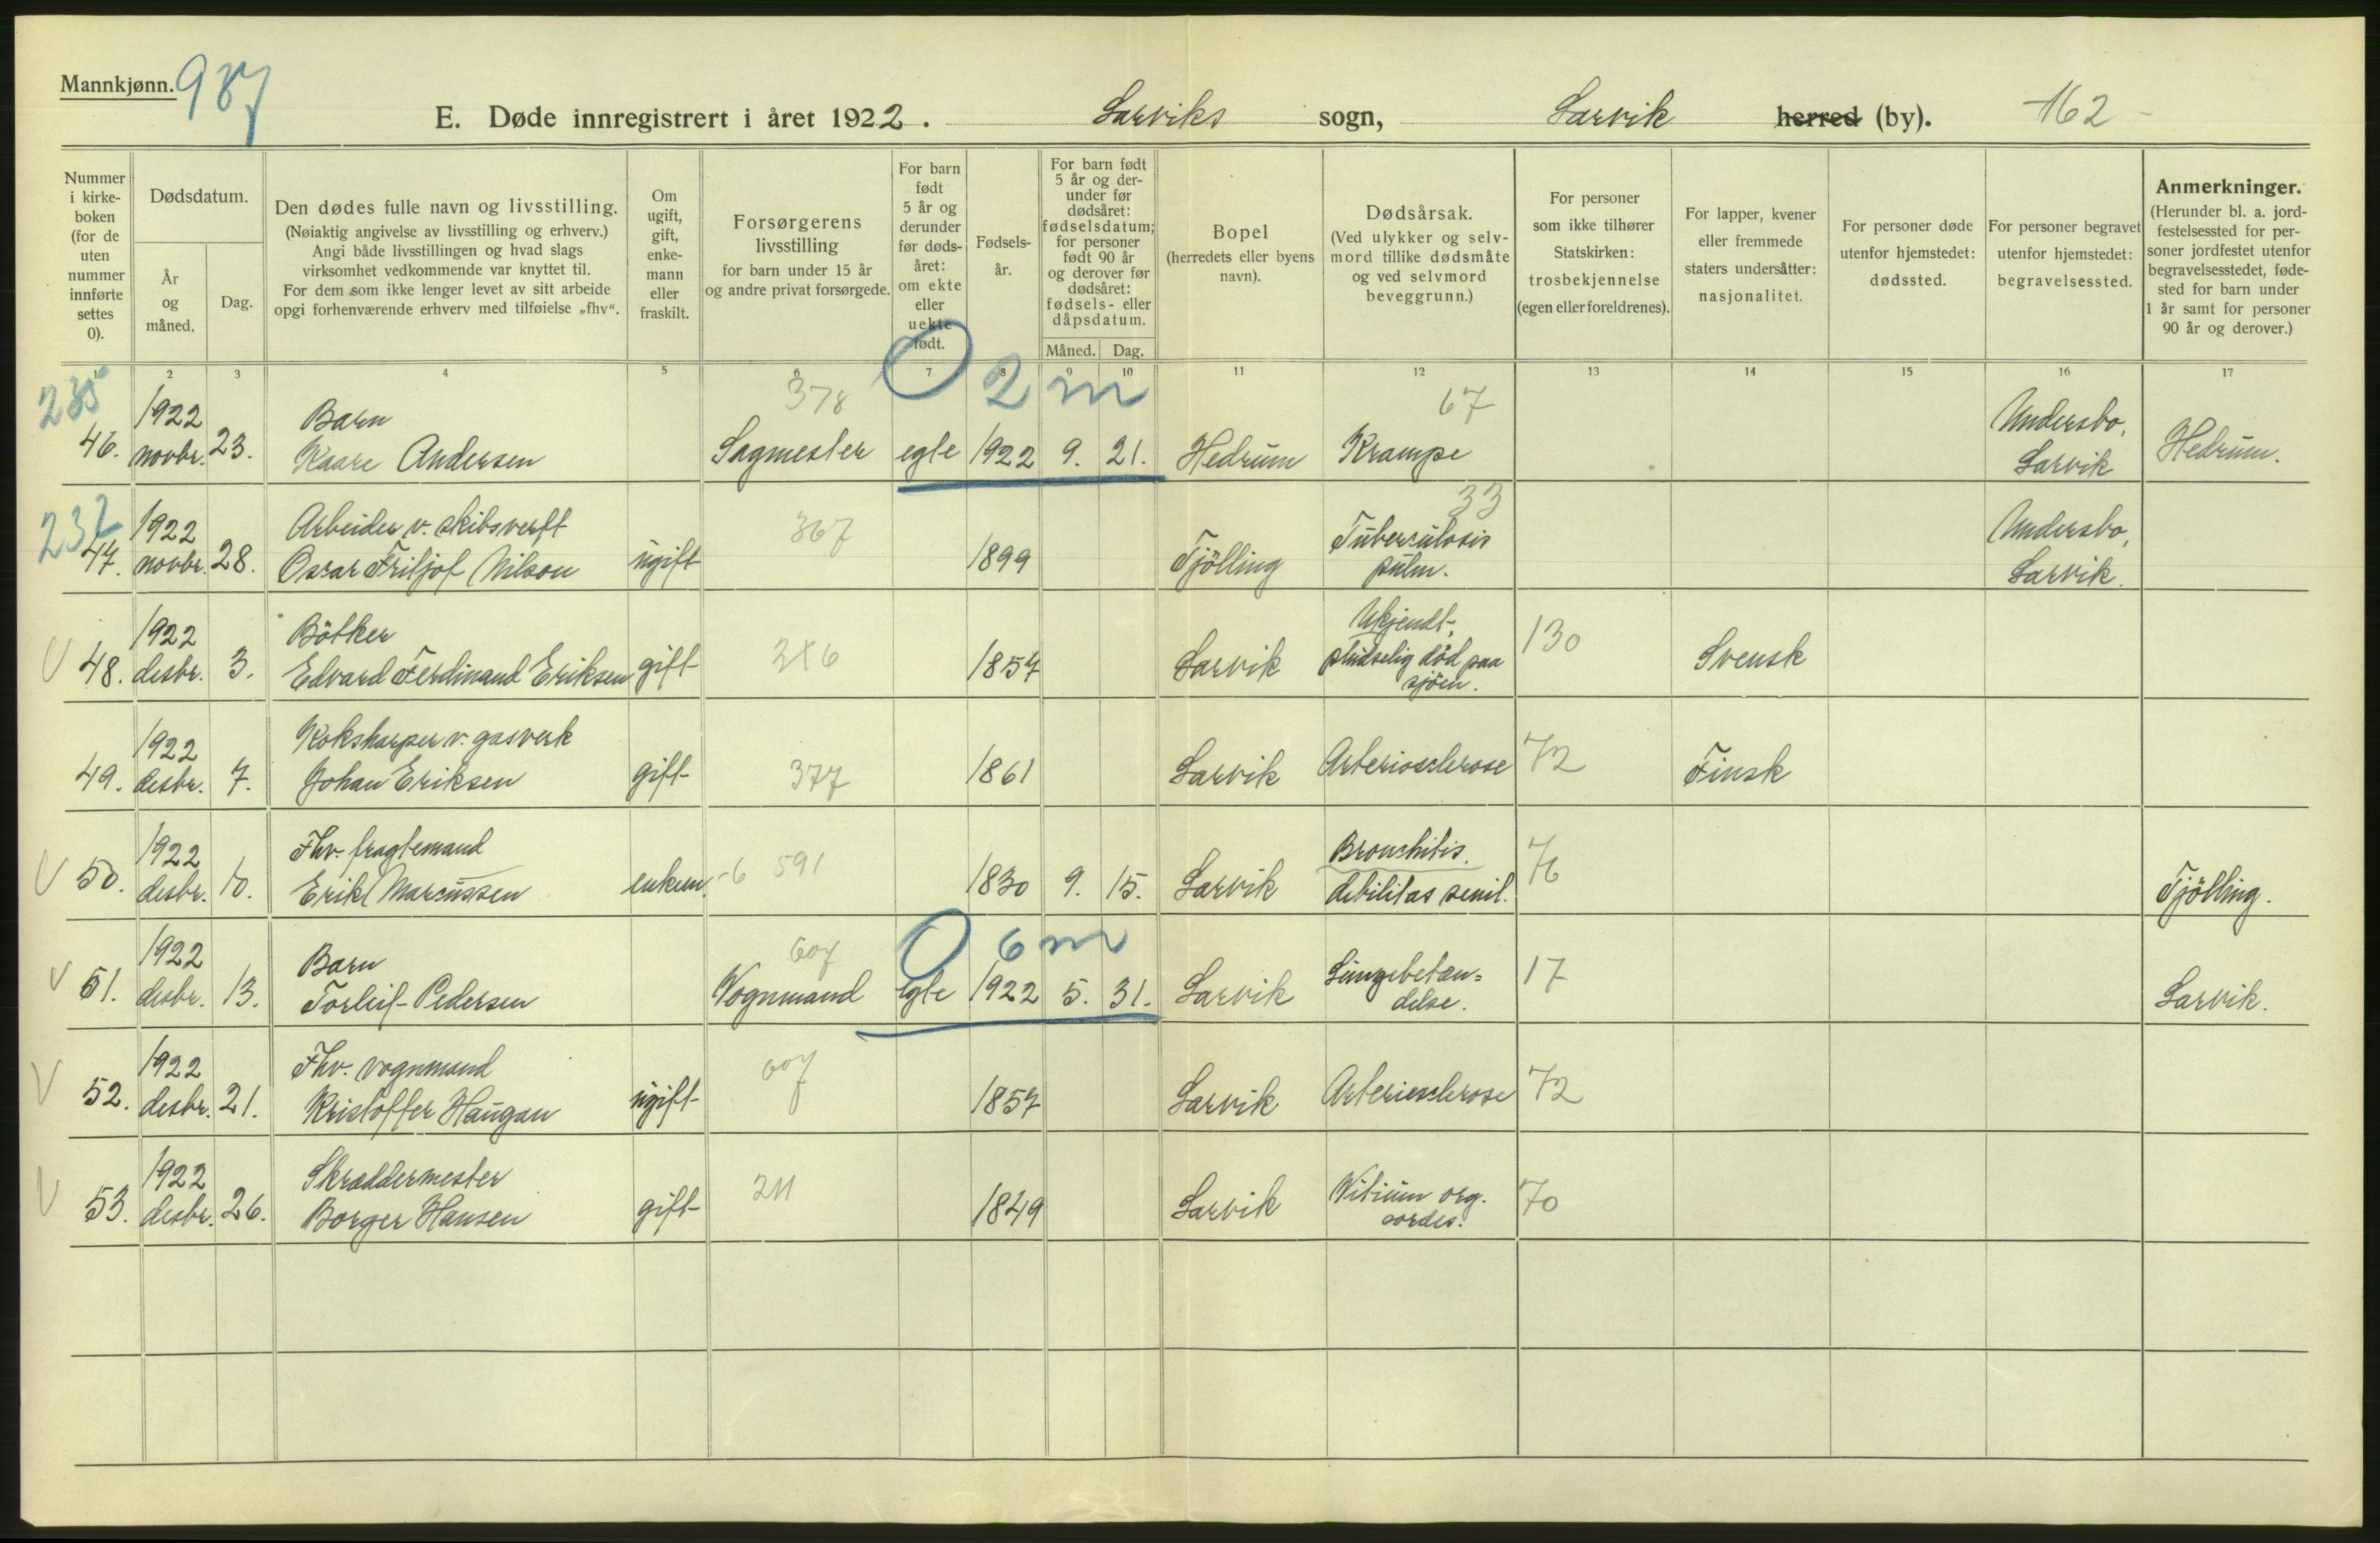 Mannkjønn. 987
E. Døde innregistrert i året 1922. Larviks sogn, Larvik herred (by). 162
Nummer i kirkeboken (for de uten nummer innførte settes 0).
Dødsdatum.
År og måned.
Dag.
Den dødes fulle navn og livsstilling.
(Nøiaktig angivelse av livsstilling og erhverv.)
Angi både livsstillingen og hvad slags
virksomhet vedkommende var knyttet til.
For dem som ikke lenger levet av sitt arbeide
opgi forhenværende erhverv med tilføielse „fhv“.
Om ugift, gift, enkemann eller fraskilt.
Forsørgerens livsstilling
for barn under 15 år
og andre privat forsørgede.
For barn født 5 år og derunder før dødsåret: om ekte eller uekte født.
Fødselsår.
For barn født 5 år og derunder før dødsåret: fødselsdatum; for personer født 90 år og derover før dødsåret: fødsels- eller dåpsdatum.
Måned. Dag.
Bopel
(herredets eller byens navn).
Dødsårsak.
(Ved ulykker og selvmord tillike dødsmåte og ved selvmord beveggrunn.)
For personer som ikke tilhører Statskirken: trosbekjennelse (egen eller foreldrenes).
For lapper, kvener eller fremmede staters undersåtter: nasjonalitet.
For personer døde utenfor hjemstedet: dødssted.
For personer begravet utenfor hjemstedet: begravelsessted.
Anmerkninger.
(Herunder bl. a. jordfestelsessted for personer jordfestet utenfor begravelsesstedet, fødested for barn under 1 år samt for personer 90 år og derover.)
1 2 3 4 5 6 7 8 9 10 11 12 13 14 15 16 17
235 378 0 2 m 67
1922 Barn Undersbo,
46. novbr. 23. Kaare Andersen Sagmester egte 1922 9. 21. Hedrum Krampe Larvik Hedrum.
232 1922 Arbeider v. skibsverft 367 33 Tuberculosis Undersbo,
47. novbr. 28. Oscar Fritjof Nilson ugift 1899 Tjölling pulm. Larvik.
V 1922 Bötker Ukjendt,
48. desbr. 3. Edvard Ferdinand Eriksen gift 1857 Larvik pludselig död paa 130 Svensk
sjöen.
1922 Koksharper v. gasverk
49. desbr. 7. Johan Eriksen gift 377 1861 Larvik Arteriosclerose 72 Finsk
V 1922 Fhv. fragtemand -6 591 Bronchitis.
50. desbr. 10. Erik Marcussen enkem. 1830 9. 15. Larvik debilitas senil. 76 Tjölling.
V 1922 Barn 607 0 6 m Lungebetæn=
51. desbr. 13. Torleif Pedersen Vognmand Egte 1922 5. 31. Larvik delse. 17 Larvik.
V 1922 Fhv. vognmand 607
52. desbr. 21. Kristoffer Haugan ugift 1857 Larvik Arteriesclerose 72
V 1922 Skræddermester 211 Vitium org.
53. desbr. 26. Borger Hansen gift 1849 Larvik cordis. 70